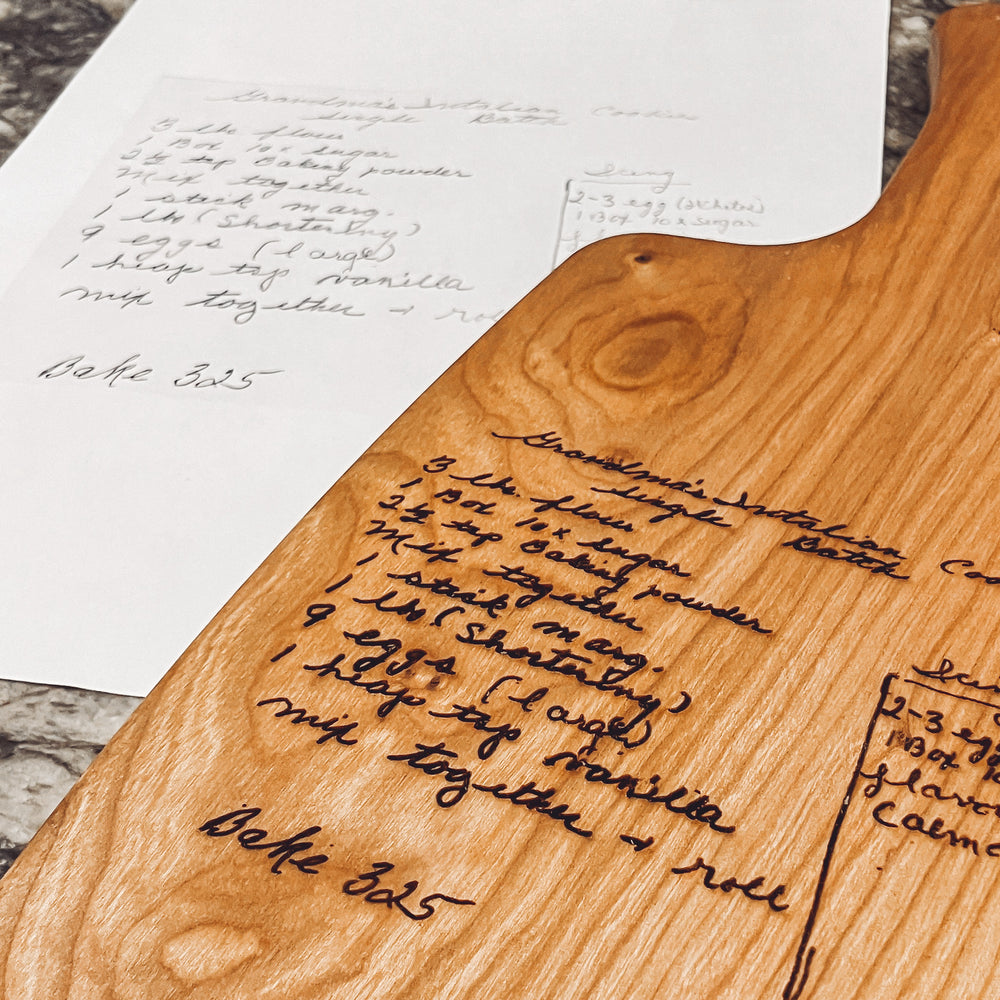 Grandma's Initalian Cookies
Single Batch
3 lbs. flour
1 Box 10x sugar
2½ tsp Baking powder
Mix together
1 stick marg.
1 lb (Shortening)
9 eggs (large)
1 heap tsp vanilla
mix together + roll
Bake 325
Icing
2-3 egg (whites)
1 Box 10x sugar
Grandma's Initalian
Single Batch
3 lbs. flour
1 Box 10x sugar
2½ tsp Baking powder
Mix together
1 stick marg.
1 lb (Shortening)
9 eggs (large)
1 heap tsp vanilla
mix together + roll
Bake 325
Icing
2-3 egg
1 Box